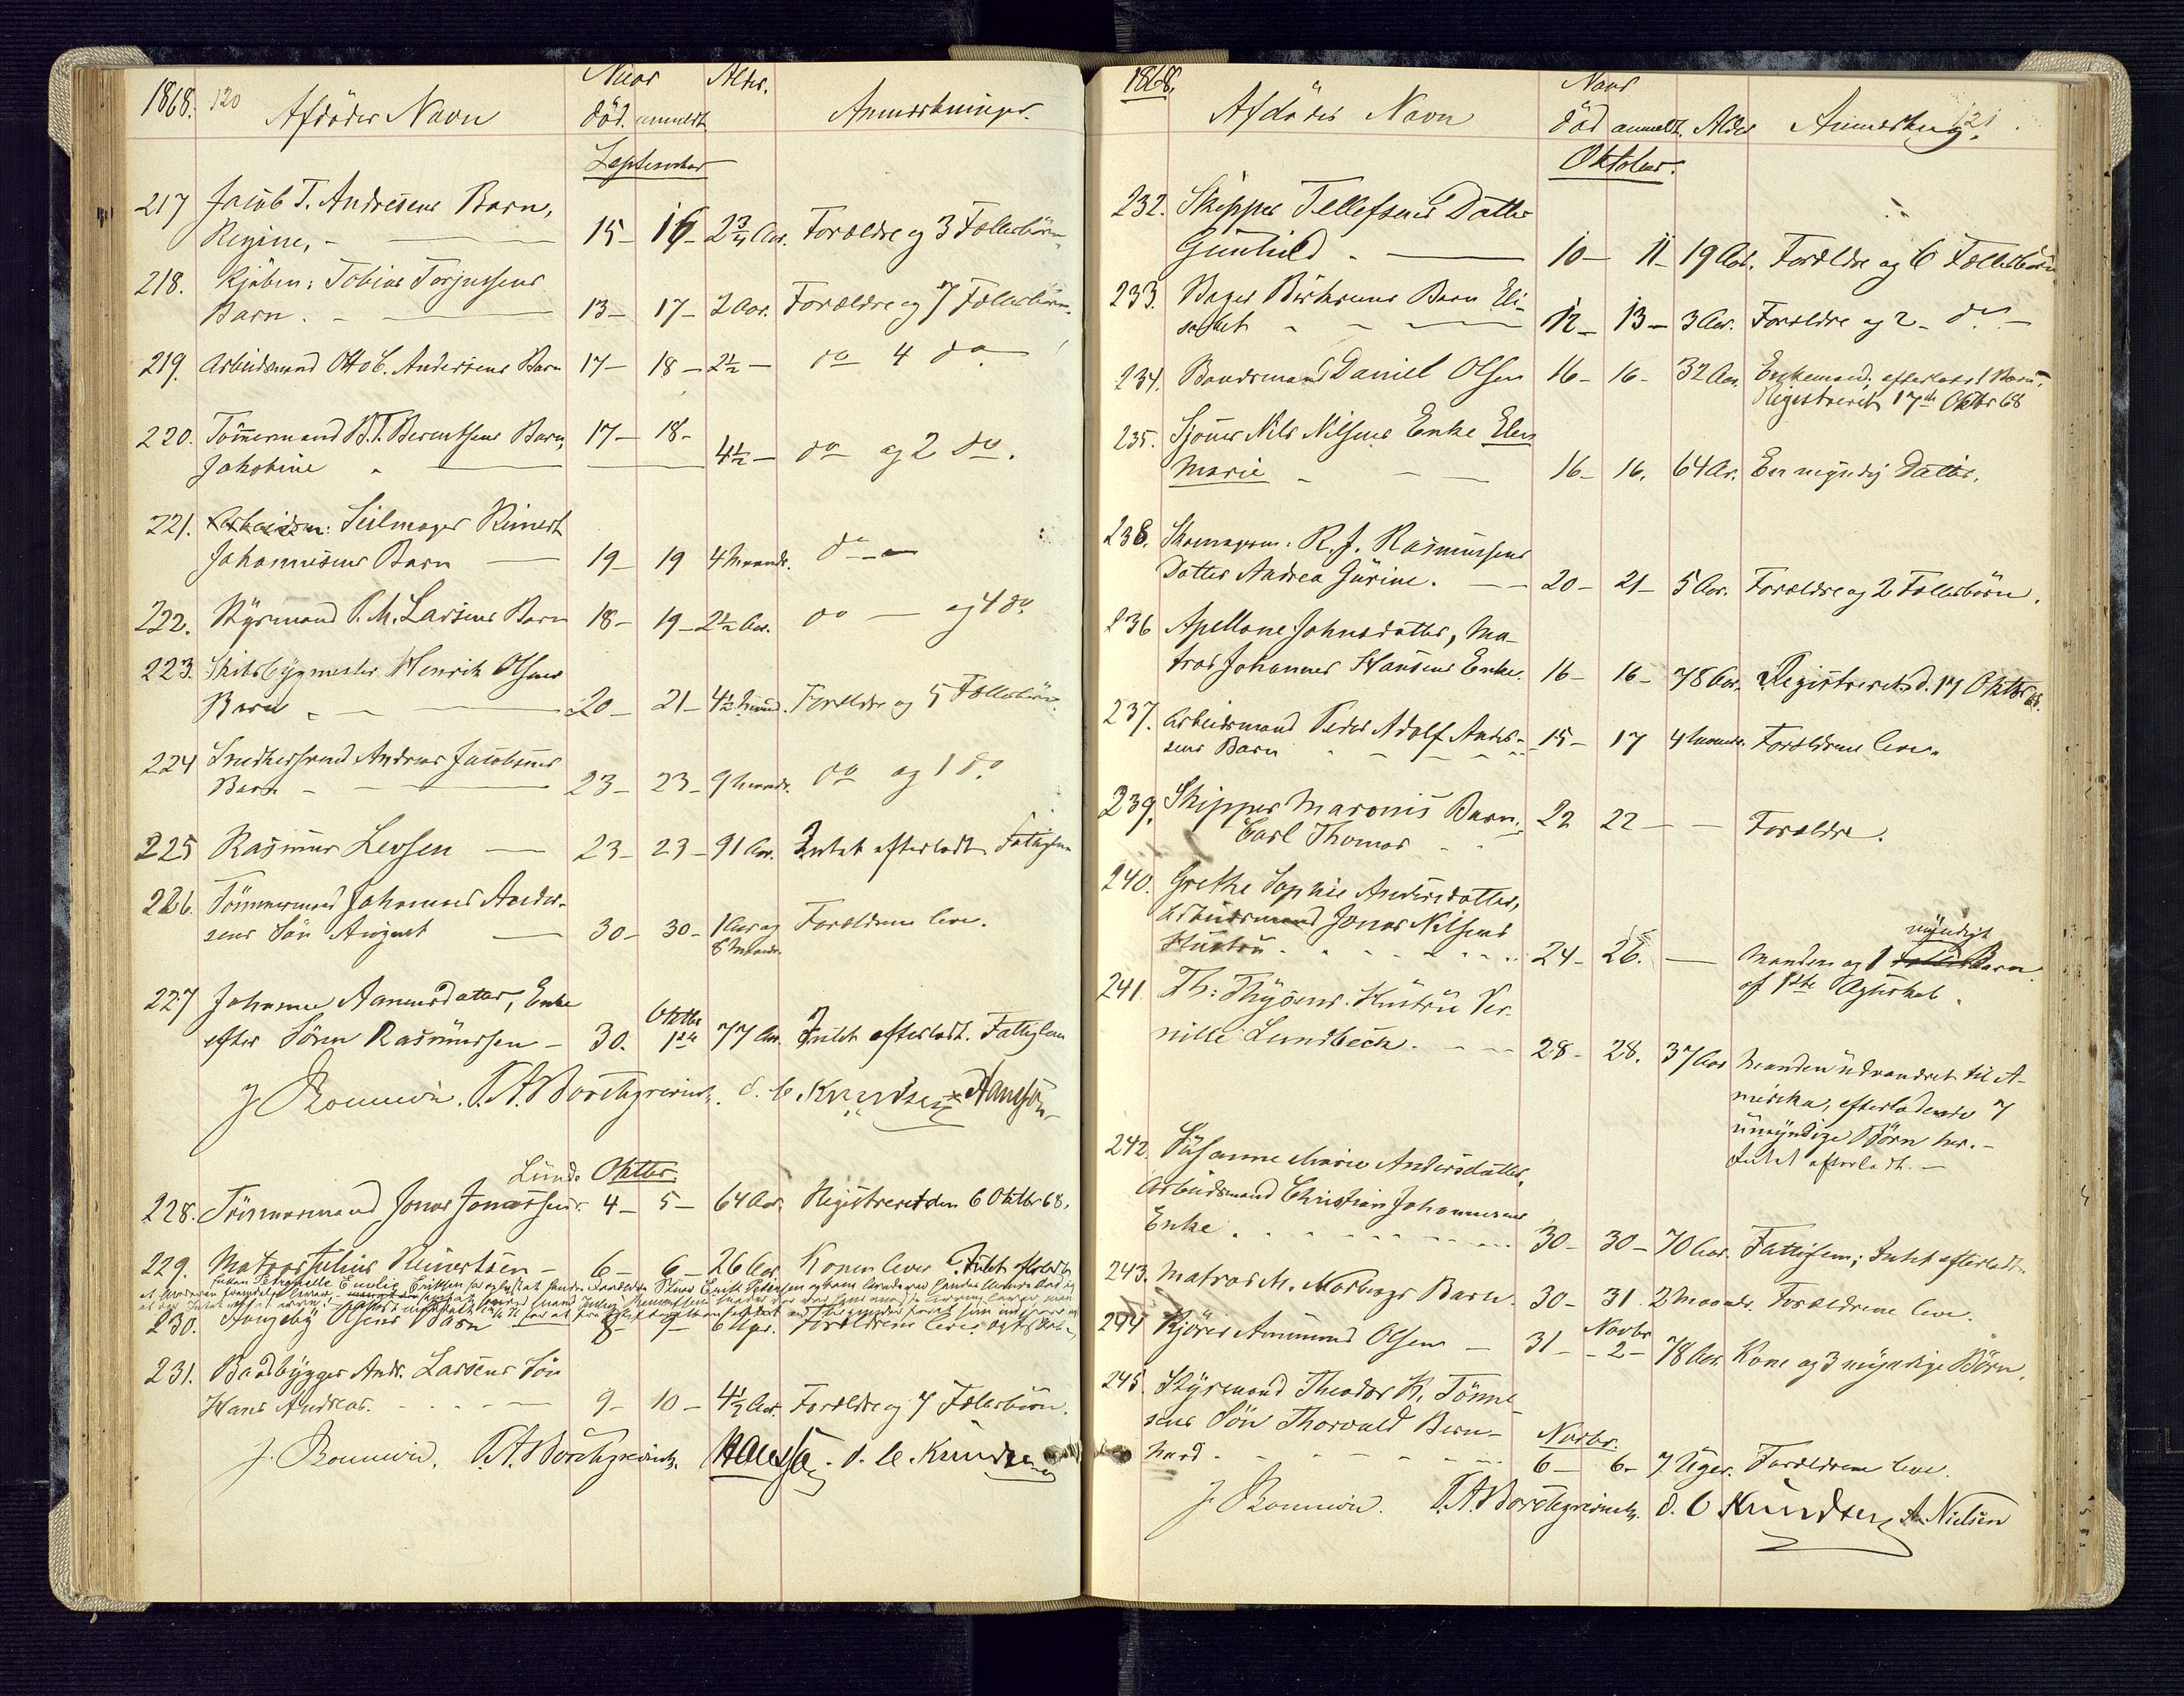 1868. 120
Afdødes Navn Naar død. anmeldt Alder. Anmærkninger.
September
217 Jacob T. Andresens Barn,
Regine, - 15 - 16 - 2 3/4 Aar. Forældre og 3 Fællesbörn
218. Kjöbm: Tobias Torjussens
Barn. - 13 - 17 - 2 Aar. Forældre og 7 Fællesbörn
219. Arbeidsmand Otto C. Andersens Barn 17 - 18 - 2 1/2 - do 4 do
220. Tömmermand B. T. Berentsens Barn, 17 - 18 -
Jakobine 4 1/2 - do og 2 do.
221. Arbeidsm: Seilmager Reinert
Johannesens Barn - 19 - 19 4 Maand. do -
222. Styrmand P. M. Larsens Barn 18 - 19 - 2 1/2 Aar. do - og 4 do
223. Skibsbygmester Henrik Olsens
Barn - 20 - 21 - 4 1/2 Maand. Forældre og 5 Fællesbörn.
224 Snedkersvend Andreas Jacobsens
Barn - 23 - 23 - 9 Maand. do og 1 do
225 Rasmus Levsen - 23 - 23 - 91 Aar. Intet efterladt. Fattiglem
226. Tömmermand Johannes Ander-
sens Sön August - 30 - 30 - 1 Aar og 8 Maand. Forældrene leve.
227 Johanne Aanensdatter, Enke
efter Sören Rasmussen - 30. Oktbr 1ste 77 Aar. Intet efterladt. Fattiglem
J Bomwin. T. A. Borchgrevink. O. C. Knudsen Hansson
Lund. Oktbr.
228. Tömmermand Jonas Jonassen. 4 - 5 - 64 Aar. Registreret den 6 Oktbr 68.
229. Matros Julius Reinertsen - 6 - 6 - 26 Aar. Konen lever. Intet efterladt
230. Olsens Barn 8 - 9 - 6 Uger. Forældrene leve
231. Baadbygger Andr. Larsens Sön
Hans Andreas. - 9 - 10 - 4 1/2 Aar. Forældre og 7 Fællesbörn.
J. Bomwin. T. A. Borchgrevink. Hansson. O. C. Knudsen
1868. 121
Afdødes Navn Naar död anmeldt. Alder Anmærkning.
Oktober.
232. Skipper Tellefsens Datter
Gunhild - 10 - 11 - 19 Aar. Forældre og 6 Fællesbörn
233. Bager Barn Eli-
sabet - 12 - 13 - 3 Aar. Forældre og 2 - do -
234. Baadsmand Daniel Olsen 16 - 16 - 32 Aar. Enkemand, efterladt 1 Barn,
Registreret 17de Oktbr 68
235. Sjömand Nils Nilsens Enke Elen
Marie - 16 - 16. 64 Ar. En myndig Datter.
238. Skomagerm. R. J. Rasmussens
Datter Andrea Gurine. - 20 - 21 - 5 Aar. Forældre og 2 Fællesbörn.
236 Apellone Johnsdatter, Ma-
tros Johannes Hansens Enke. 16 - 16 - 78 Aar. Registreret d. 17 Oktbr 68.
237. Arbeidsmand Peder Adolf Ander-
sens Barn 15 - 17 4 Maand. Forældrene leve.
239. Skipper Maronis Barn, 22 22 - - Forældre.
Carl Thomas
240. Grethe Sophie Andersdatter,
Arbeidsmand Jonas Nilsens
Hustru - 24 - 26. - Manden og 1 myndigt Barn
af 1ste Ægteskab.
241. Th: Thysens Hustru Per-
nille Lundbeck. - 28 - 28. 37 Aar Manden udvandret til A-
merika, efterladende 7
umyndige Börn her. -
Intet efterladt. -
242. Susanne Marie Andersdatter,
Arbeidsmand Christian Johannesens
Enke - 30 - 30 - 70 Aar. Fattiglem; Intet efterladt.
243. Matros M. Norbergs Barn. 30 - 31. 2 Maand. Forældrene leve.
244 Kjörer Ammund Olsen - 31 - Novbr 2 - 78 Aar. Kone og 3 myndige Börn.
245. Styrmand Theodor K. Tönne-
sens Sön Thorvald Bern- Novbr.
hard - 6 - 6 - 7 Uger. Forældrene leve.
J Bomwin. T. A. Borchgrevink. O. C Knudsen A Nielsen